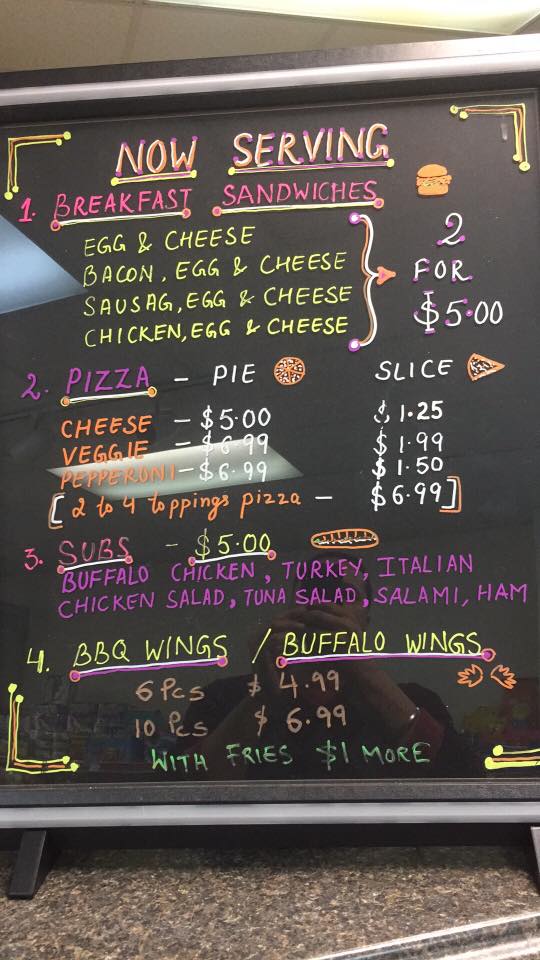 NOW SERVING
1. BREAKFAST SANDWICHES
EGG & CHEESE
BACON, EGG & CHEESE
SAUSAG, EGG & CHEESE
CHICKEN, EGG & CHEESE
2
FOR
$5.00
2. PIZZA - PIE SLICE
CHEESE - $5.00 $1.25
VEGGIE - $6.99 $1.99
PEPPERONI - $6.99 $1.50
[2 to 4 toppings pizza - $6.99]
3. SUBS - $5.00
BUFFALO CHICKEN, TURKEY, ITALIAN
CHICKEN SALAD, TUNA SALAD, SALAMI, HAM
4. BBQ WINGS / BUFFALO WINGS
6 Pcs $4.99
10 Pcs $6.99
WITH FRIES $1 MORE